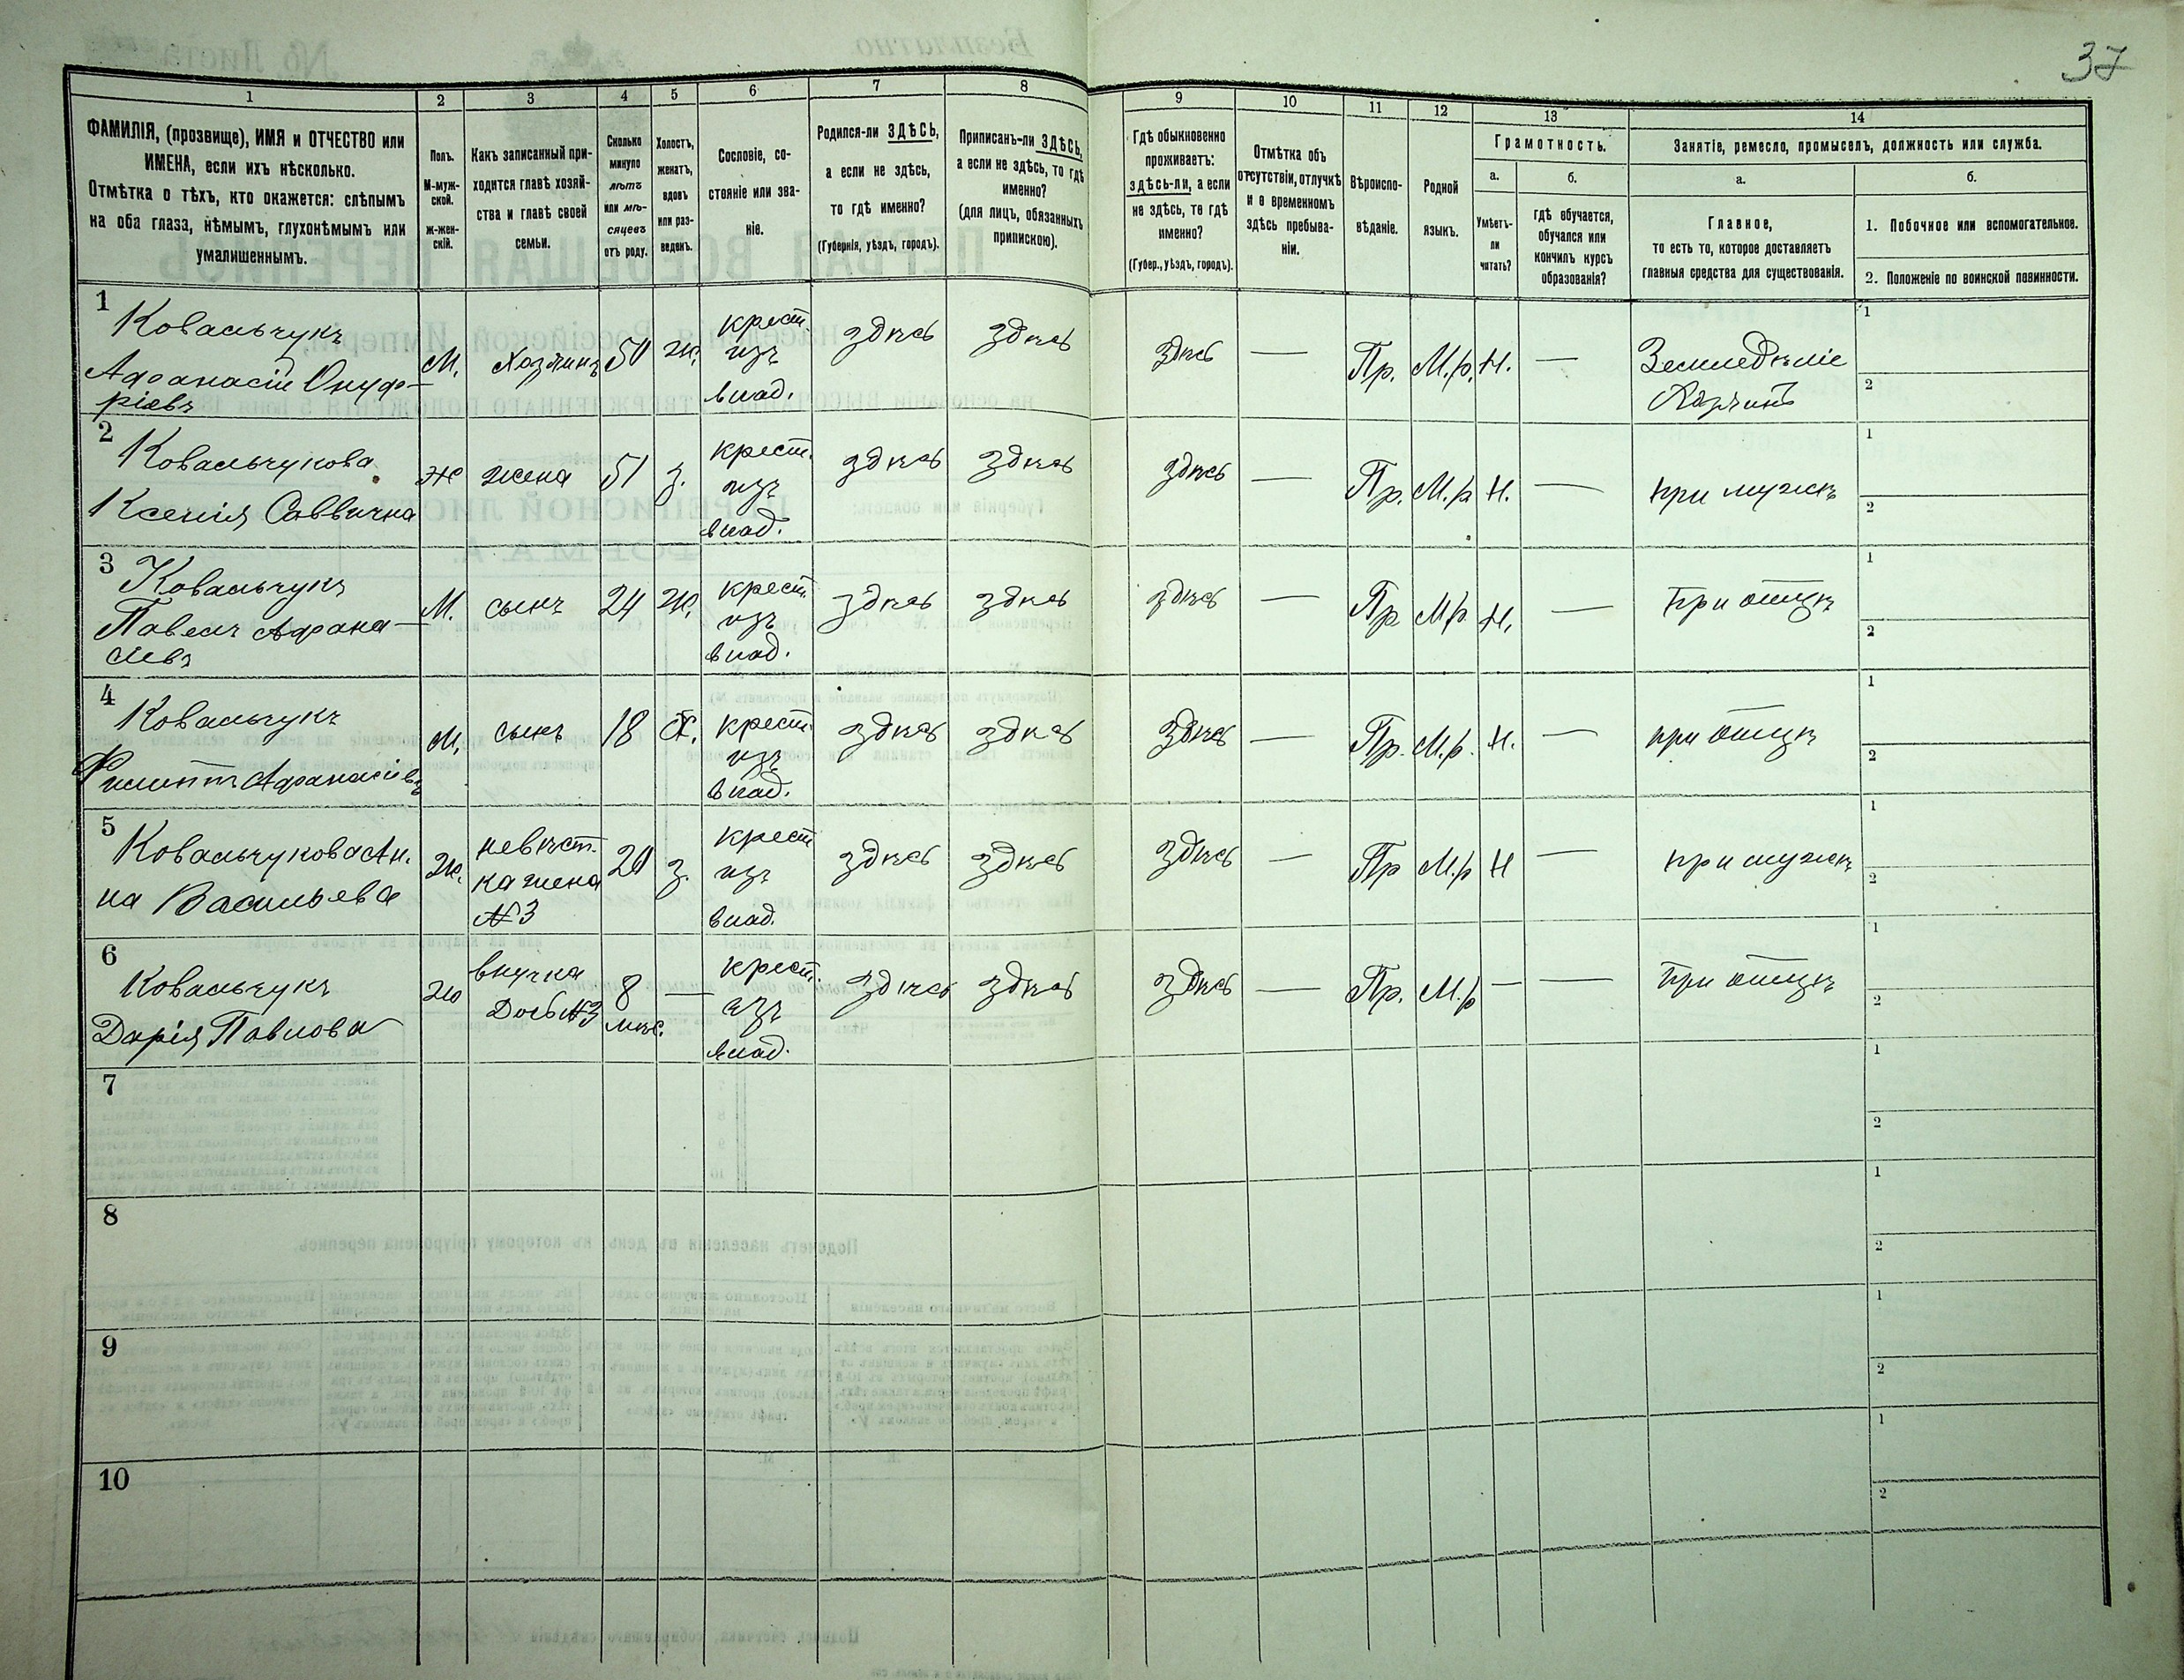 37
1
2
3
4
5
6
7
8
9
10
11
12
13
14
ФАМИЛІЯ, (прозвище), ИМЯ и ОТЧЕСТВО или
ИМЕНА, если ихъ нѣсколько.
Отмѣтка о тѣхъ, кто окажется: слѣпымъ
на оба глаза, нѣмымъ, глухонѣмымъ или
умалишеннымъ.
Полъ.
М-муж-
ской.
ж-жен-
скій.
Какъ записанный при-
ходится главѣ хозяй-
ства и главѣ своей
семьи.
Сколько
минуло
лѣтъ
или мѣ-
сяцевъ
отъ роду.
Холостъ,
женатъ,
вдовъ
или раз-
веденъ.
Сословіе, со-
стояніе или зва-
ніе.
Родился-ли ЗДѢСЬ,
а если не здѣсь,
то гдѣ именно?
(Губернія, уѣздъ, городъ).
Приписанъ-ли ЗДѢСЬ,
а если не здѣсь, то гдѣ
именно?
(для лицъ, обязанныхъ
припискою).
Гдѣ обыкновенно
проживаетъ:
здѣсь-ли, а если
не здѣсь, то гдѣ
именно?
(Губер., уѣздъ, городъ).
Отмѣтка объ
отсутствіи, отлучкѣ
и о временномъ
здѣсь пребыва-
ніи.
Вѣроиспо-
вѣданіе.
Родной
языкъ.
Грамотность.
а.
Умѣетъ-
ли
читать?
б.
гдѣ обучается,
обучался или
кончилъ курсъ
образованія?
Занятіе, ремесло, промыселъ, должность или служба.
а.
Главное,
то есть то, которое доставляетъ
главныя средства для существованія.
б.
1. Побочное или вспомогательное.
2. Положеніе по воинской повинности.
1
Ковальчукъ
Афанасій Онуф-
ріевъ
М.
Хозяинъ
50
Ж.
крест.
изъ
влад.
здѣсь
здѣсь
здѣсь
—
Пр.
М.р.
Н.
—
Земледѣліе
Хозяинъ
1
2
2
Ковальчукова
Ксенія Саввична
Ж
жена
51
з.
крест.
изъ
влад.
здѣсь
здѣсь
здѣсь
—
Пр.
М.р
Н.
—
при мужѣ
1
2
3
Ковальчукъ
Павелъ Афана-
сіевъ
М.
сынъ
24
Ж.
крест.
изъ
влад.
здѣсь
здѣсь
здѣсь
—
Пр
М.р.
Н.
—
при отцѣ
1
2
4
Ковальчукъ
Филиппъ Афанасіевъ
М.
сынъ
18
Х.
крест.
изъ
влад.
здѣсь
здѣсь
здѣсь
—
Пр.
М.р.
Н.
—
при отцѣ
1
2
5
Ковальчукова Ан-
на Васильева
Ж.
невѣст-
ка жена
№3
20
з.
крест
изъ
влад.
здѣсь
здѣсь
здѣсь
—
Пр
М.р
Н
—
при мужѣ
1
2
6
Ковальчукъ
Дарія Павлова
Ж
внучка
Дочь №3
8
мѣс.
—
крест.
изъ
влад.
здѣсь
здѣсь
здѣсь
—
Пр.
М.р
—
—
при отцѣ
1
2
7
1
2
8
1
2
9
1
2
10
1
2